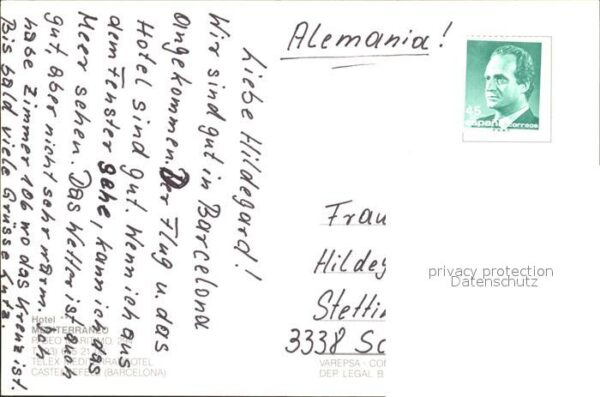 Liebe Hildegard!
Wir sind gut in Barcelona
angekommen. Der Flug u. das
Hotel sind gut. Wenn ich aus
dem Fenster gehe, kann ich das
Meer sehen. Das Wetter ist auch
gut, aber nicht sehr warm. Ich
habe Zimmer 106 wo das Kreuz ist.
Bis bald viele Grüsse Lutz.
Alemania!
45
españa correos
Frau
Hildeg
Stettin
3338 Sc
privacy protection
Datenschutz
Hotel
MEDITERRANEO
PASEO MARITIMO
TELEX
HOTEL
CASTELLDEFELS (BARCELONA)
VAREPSA - CO
DEP. LEGAL B